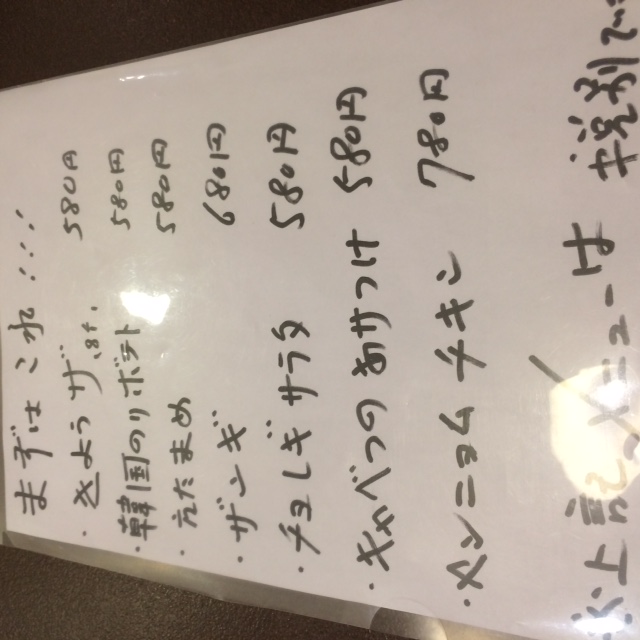 まずはこれ・・・・
・ぎょうざ 580円
・韓国のりポテト 580円
・えだまめ 580円
・ザンギ 680円
・チョレギサラダ 580円
・キャベツのあさづけ 580円
・ペンニョムメキン 780円
メニューは